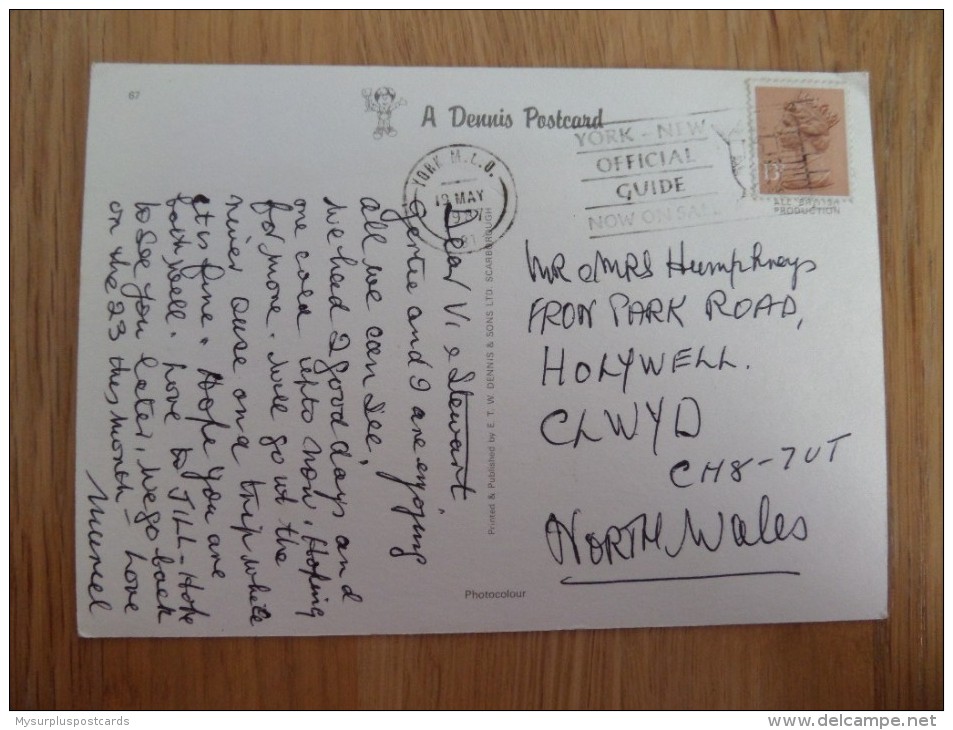 67
A Dennis Postcard
YORK M.L.O.
19 MAY
1987
YORK - NEW
OFFICIAL
GUIDE
NOW ON SALE
13
PRODUCTION
Dear Vi & Stewart
Gertie and I are enjoying
all we can see,
we had 2 good days and
one cold up to now. Hoping
for more. will go out the
river Ouse on a trip while
it is fine. Hope you are
both well. Love to JILL - Hope
to see you later, we go back
on the 23 this month - Love
Muriel
Printed & Published by E. T. W. DENNIS & SONS LTD. SCARBOROUGH
MR & MRS Humphreys
FRON PARK ROAD,
HOLYWELL.
CLWYD
CH8-7UT
NORTH Wales
Photocolour
Mysurpluspostcards
www.delcampe.net